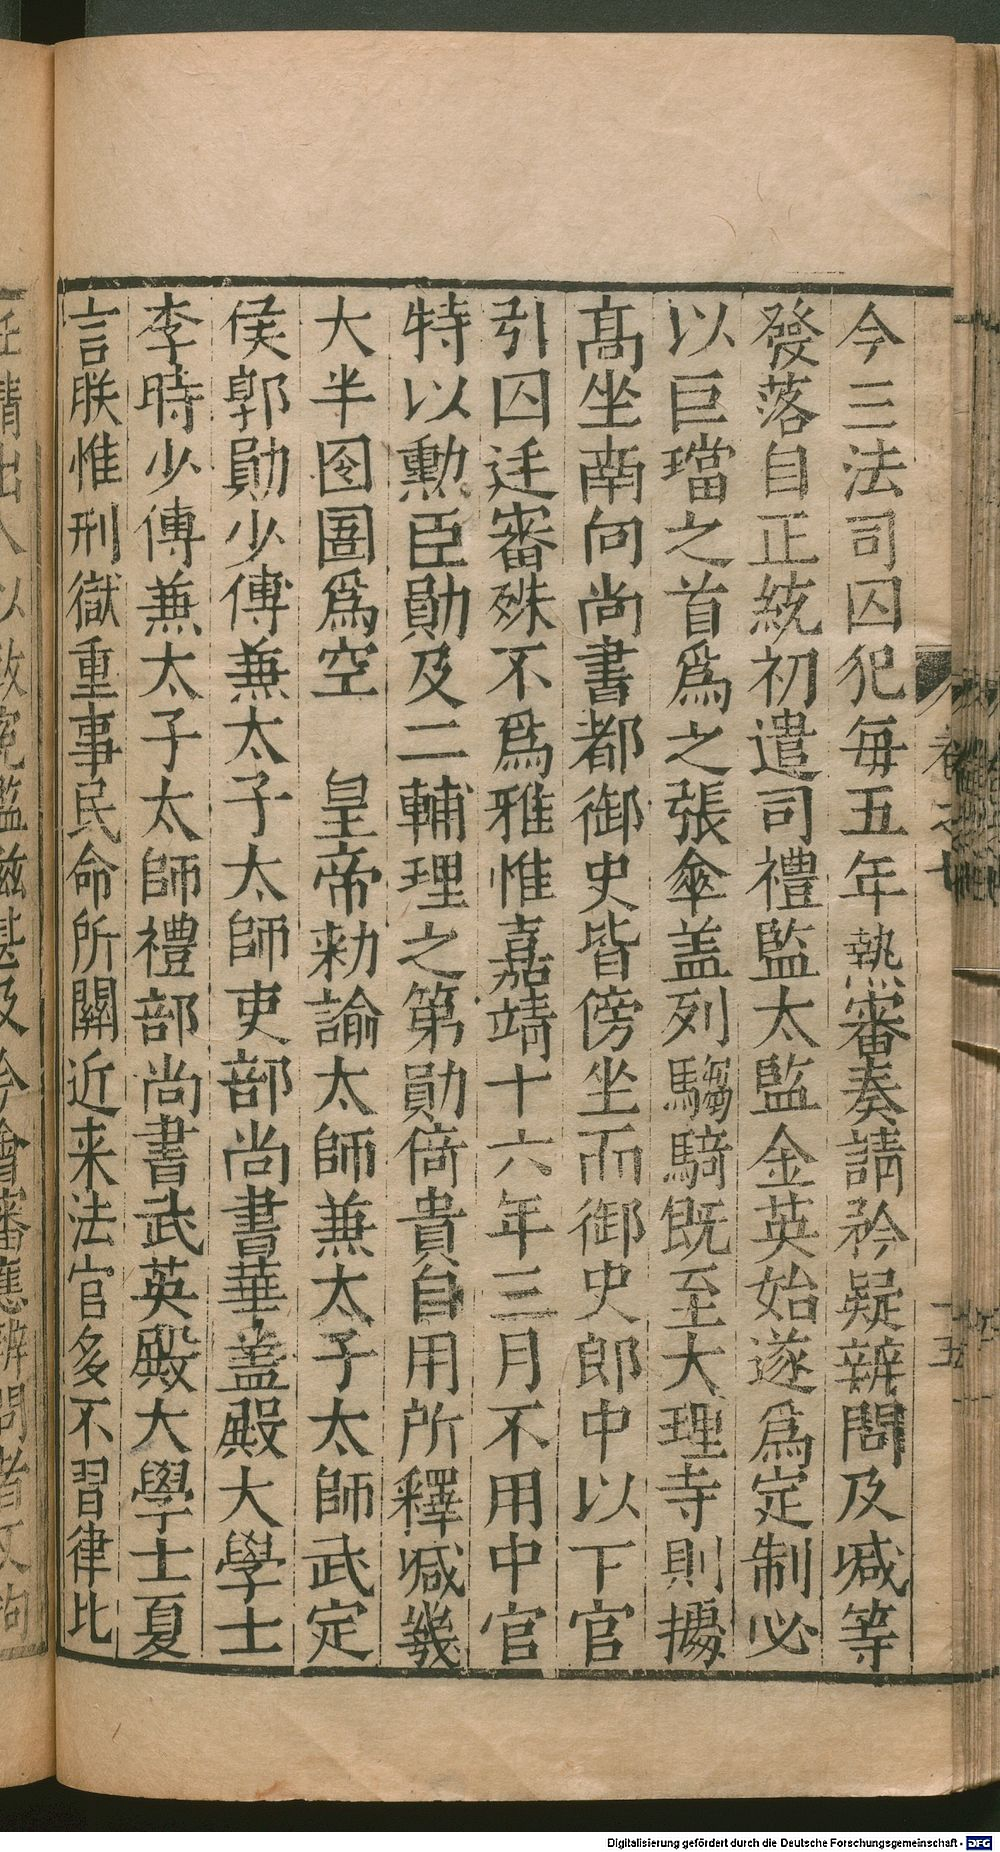 今三法司囚犯每五年熱審奏請矜疑辨問及減等
發落自正統初遣司禮監太監金英始遂爲定制必
以巨璫之首爲之張傘盖列騶騎旣至大理寺則據
髙坐南向尚書都御史皆傍坐而御史郎中以下官
引囚廷審殊不爲雅惟嘉靖十六年三月不用中官
特以勳臣勛及二輔理之第勛倚貴自用所釋減幾
大半囹圄爲空　皇帝勑諭太師兼太子太師武定
侯郭勛少傅兼太子太師吏部尚書華盖殿大學士
李時少傅兼太子太師禮部尚書武英殿大學士夏
言朕惟刑獄重事民命所關近来法官多不習律比
Digitalisierung gefördert durch die Deutsche Forschungsgemeinschaft - DFG